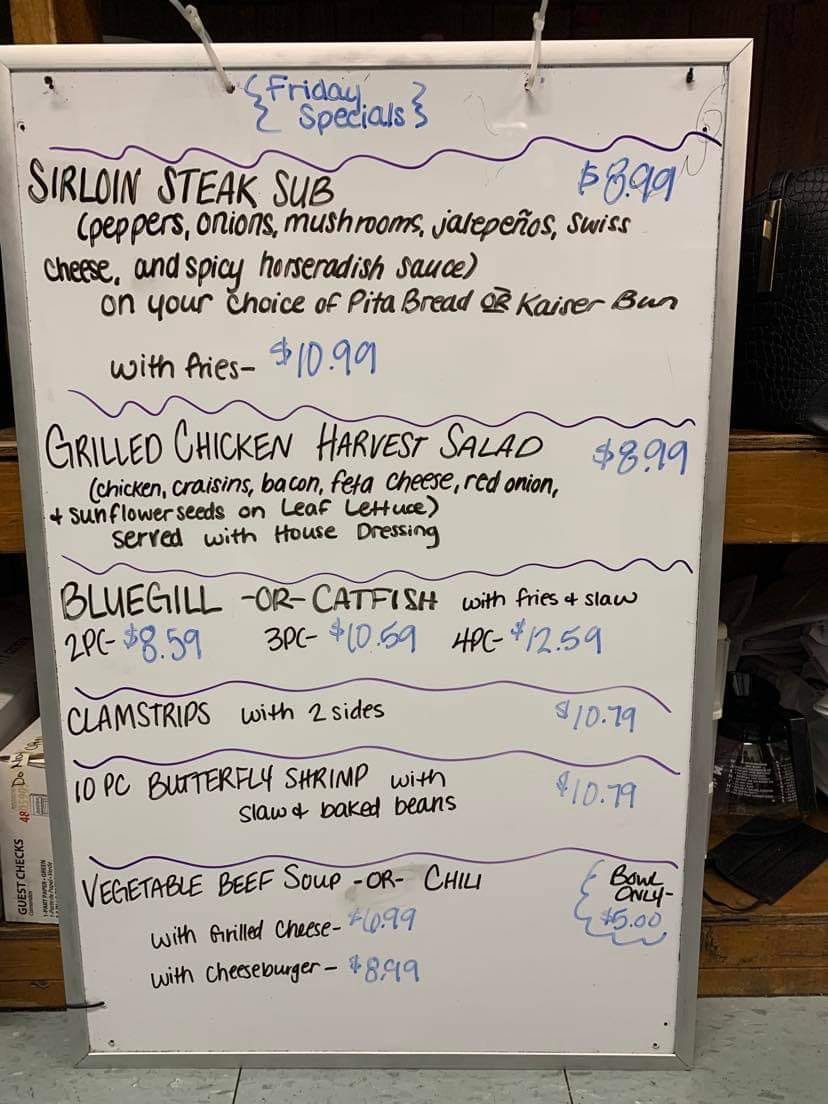 {Friday
Specials}
SIRLOIN STEAK SUB $8.99
(peppers, onions, mushrooms, jalepeños, swiss
cheese, and spicy horseradish sauce)
on your choice of Pita Bread OR Kaiser Bun
with fries- $10.99
GRILLED CHICKEN HARVEST SALAD $8.99
(chicken, craisins, bacon, feta cheese, red onion,
+ sunflower seeds on Leaf Lettuce)
served with House Dressing
BLUEGILL -OR- CATFISH with fries + slaw
2PC- $8.59 3PC- $10.59 4PC- $12.59
CLAMSTRIPS with 2 sides $10.79
10 PC BUTTERFLY SHRIMP with $10.79
slaw + baked beans
VEGETABLE BEEF SOUP -OR- CHILI
{BOWL
ONLY-
$5.00
with Grilled Cheese- $6.99
with Cheeseburger- $8.99
GUEST CHECKS